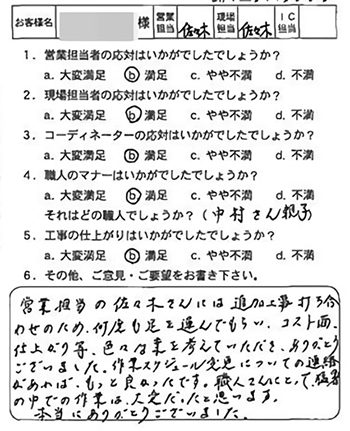 お客様名 様 営業担当 佐々木 現場担当 佐々木 IC担当
1．営業担当者の応対はいかがでしたでしょうか？
a. 大変満足 b 満足 c. やや不満 d. 不満
2．現場担当者の応対はいかがでしたでしょうか？
a. 大変満足 b 満足 c. やや不満 d. 不満
3．コーディネーターの応対はいかがでしたでしょうか？
a. 大変満足 b 満足 c. やや不満 d. 不満
4．職人のマナーはいかがでしたでしょうか？
a. 大変満足 b 満足 c. やや不満 d. 不満
それはどの職人でしょうか？（中村さん親子
5．工事の仕上がりはいかがでしたでしょうか？
a. 大変満足 b 満足 c. やや不満 d. 不満
6．その他、ご意見・ご要望をお書き下さい。
営業担当の佐々木さんには追加工事打ち合
わせのため、何度も足を運んでもらい、コスト面、
仕上がり等、色々な案を考えていただき、ありがとう
ございました。作業スケジュール変更についての連絡
があれば、もっと良かったです。職人さんにとって、猛暑
の中での作業は、大変だったと思います。
本当にありがとうございました。